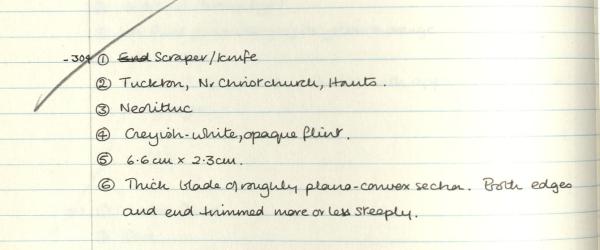 -304 ① ~~End~~ Scraper/knife
② Tuckton, Nr Christchurch, Hants.
③ Neolithic
④ Greyish-white, opaque flint.
⑤ 6.6cm x 2.3cm.
⑥ Thick blade of roughly plano-convex section. Both edges
and end trimmed more or less steeply.